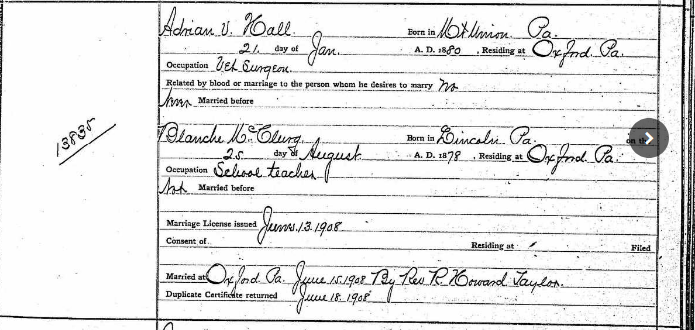 Adrian V. Hall Born in Mt Union Pa.
21. day of Jan. A. D. 1880 , Residing at Oxford Pa.
Occupation Vet Surgeon.
Related by blood or marriage to the person whom he desires to marry no
Married before
13835
Blanche McClurg Born in Lincoln Pa. on the
25 day of August A. D. 1878 , Residing at Oxford Pa.
Occupation School teacher
Not Married before
Marriage License issued June 13. 1908
Consent of Residing at Filed
Married at Oxford Pa. June 15. 1908 By Rev R. Howard Taylor.
Duplicate Certificate returned June 18. 1908